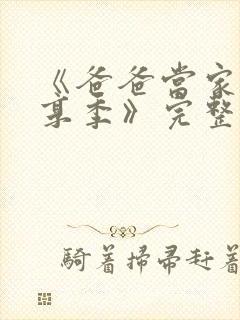 《爸爸當家
某季》完整
騎着掃帚赶着